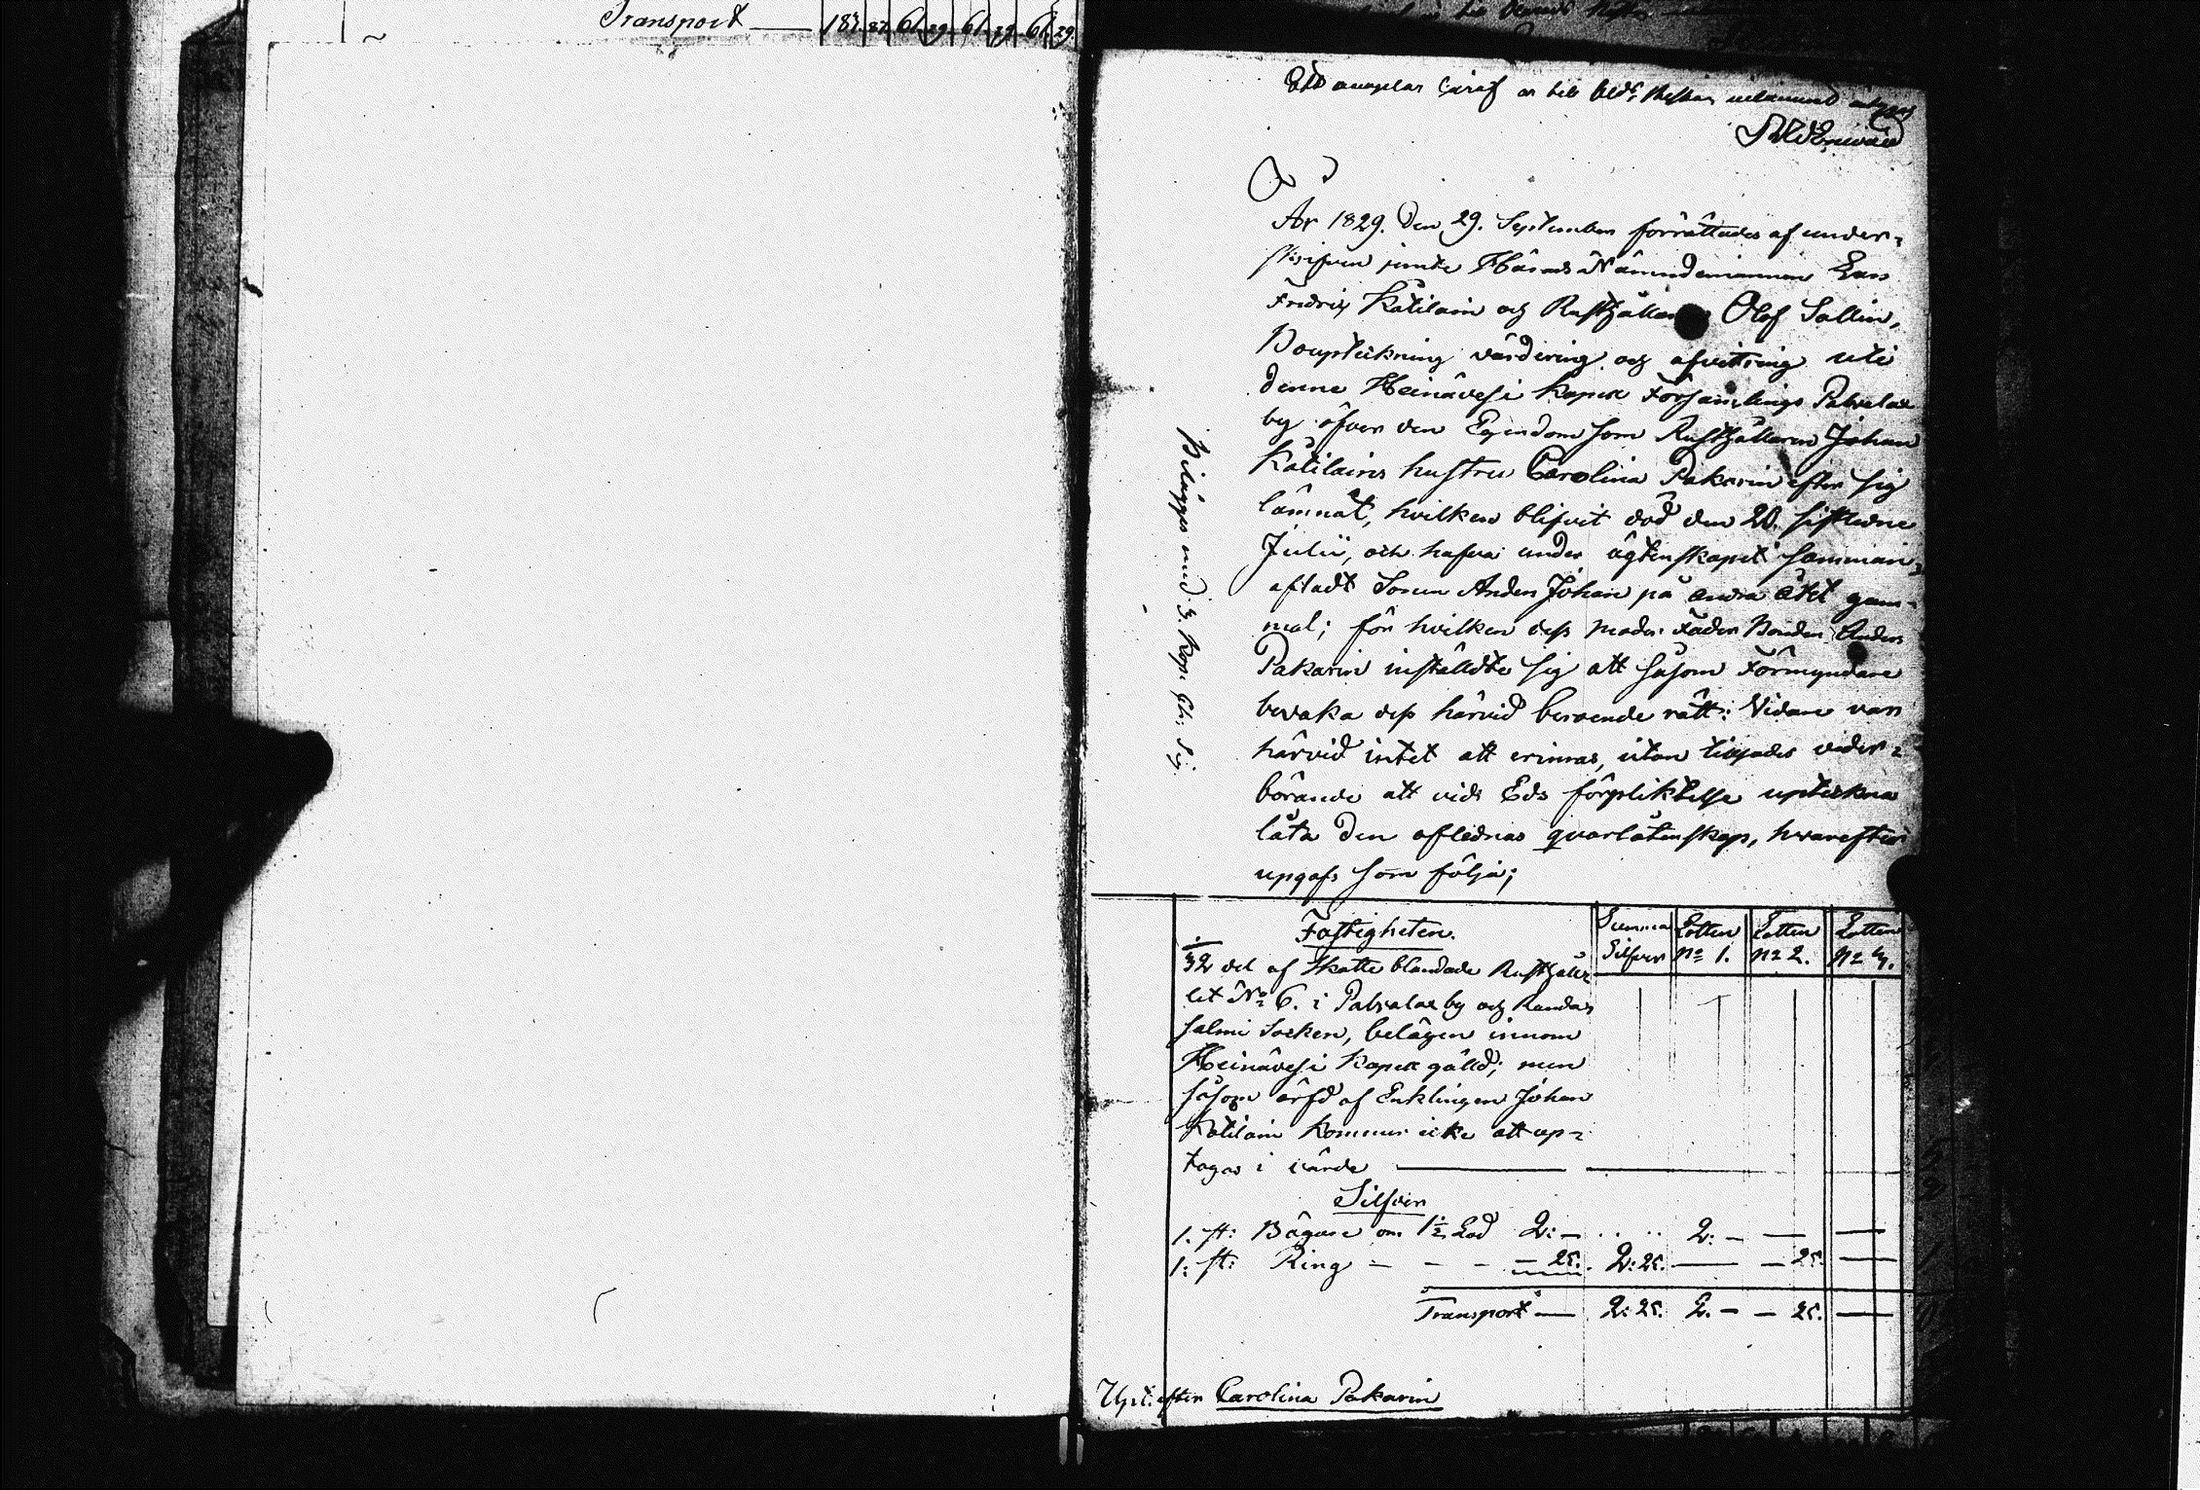 Transport — 187. 87. 61. 29. 61. 29. 61. 29.
Ett exemplar häraf
År 1829. den 29. September förrättades af under-
skrifven jemte Härads Nämndemannen Lars
Fredric Kätilain och Rusthållaren Olof Sallin,
Bouptekning värdering och afvittring uti
denne Heinävesi Kapell Församlings Palvelax
by öfver den Egendom som Rusthållaren Johan
Kätilains hustru Carolina Pakarin efter sig
lämnat, hvilken blifvit död den 20. sistledne
Julii, och hafva under ägtenskapet samman-
afladt Sonen Anders Johan på andra året gam-
mal; för hvilken dess moder Fader Bonden Anders
Pakarin instälde sig att såsom Förmyndare
bevaka dess härvid beroende rätt: Vidare var
härvid intet att erinras, utan tillsades veder-
börande att vid Eds förpliktelse upteckna
låta den aflednas qvarlåtenskap, hvarefter
upgafs som följa;
Bilägges med 3. Kop. Ch: Sig.
Fastigheten.
Summa Silfver
Lotten No 1.
Lotten No 2.
Lotten No 3.
1/32 del af Skatte blandade Rusthål-
let No 6. i Palvalax by och Randa-
salmi Socken, belägen innom
Heinävesi Kapell gälld; men
såsom ärfd af Enklingen Johan
Kätilain kommer icke att up-
tagas i värde — —
Silfver
1. st: Bägare om 1 1/2 Lod 2: — . . . . 2: — — —
1: st: Ring — — — — 25. 2: 25. — — 25. —
Transport — 2: 25. 2. — — 25. —
Upt: efter Carolina Pakarin